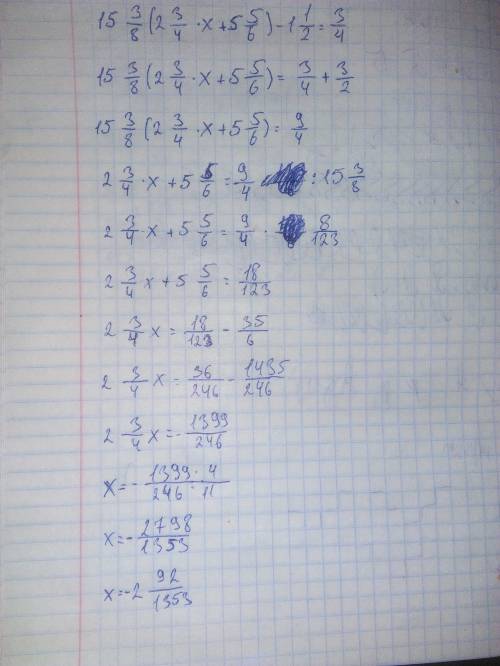 15 3/8 (2 3/4 · x + 5 5/6) - 1 1/2 = 3/4
15 3/8 (2 3/4 · x + 5 5/6) = 3/4 + 3/2
15 3/8 (2 3/4 · x + 5 5/6) = 9/4
2 3/4 · x + 5 5/6 = 9/4 : 15 3/8
2 3/4 · x + 5 5/6 = 9/4 · 8/123
2 3/4 x + 5 5/6 = 18/123
2 3/4 x = 18/123 - 35/6
2 3/4 x = 36/246 - 1435/246
2 3/4 x = - 1399/246
x = - 1399 · 4/246 · 11
x = - 2798/1353
x = -2 92/1353